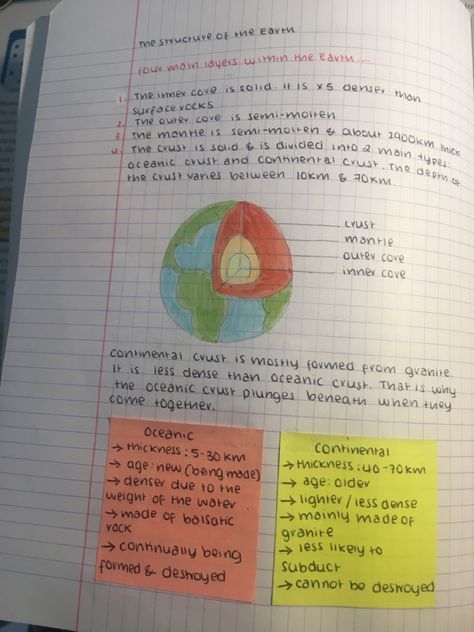 The structure of the Earth
Four main layers within the Earth....
1. The inner cove is solid. It is x5 denser than
surface rocks
2. The outer cove is semi-molten
3. The mantle is semi-molten & about 2900km thick
4. The crust is solid & is divided into 2 main types:
oceanic crust and continental crust. The depth of
the crust varies between 10km & 70km.
crust
mantle
outer cove
inner cove
continental crust is mostly formed from granite.
It is less dense than oceanic crust. That is why
the oceanic crust plunges beneath when they
come together.
Oceanic
→ thickness: 5-30km
→ age: new (being made)
→ denser due to the
weight of the water
→ made of balsatic
rock
→ continually being
formed & destroyed
Continental
→ thickness: 40-70km
→ age: older
→ lighter / less dense
→ mainly made of
granite
→ less likely to
subduct
→ cannot be destroyed